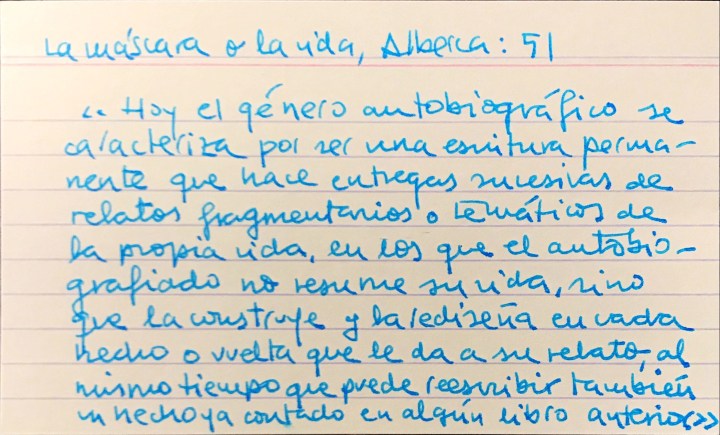 La máscara o la vida, Alberca: 51
<< Hoy el género autobiográfico se
caracteriza por ser una escritura perma-
nente que hace entregas sucesivas de
relatos fragmentarios o temáticos de
la propia vida, en los que el autobio-
grafiado no resume su vida, sino
que la construye y la rediseña en cada
hecho o vuelta que le da a su relato, al
mismo tiempo que puede reescribir también
un hecho ya contado en algún libro anterior>>